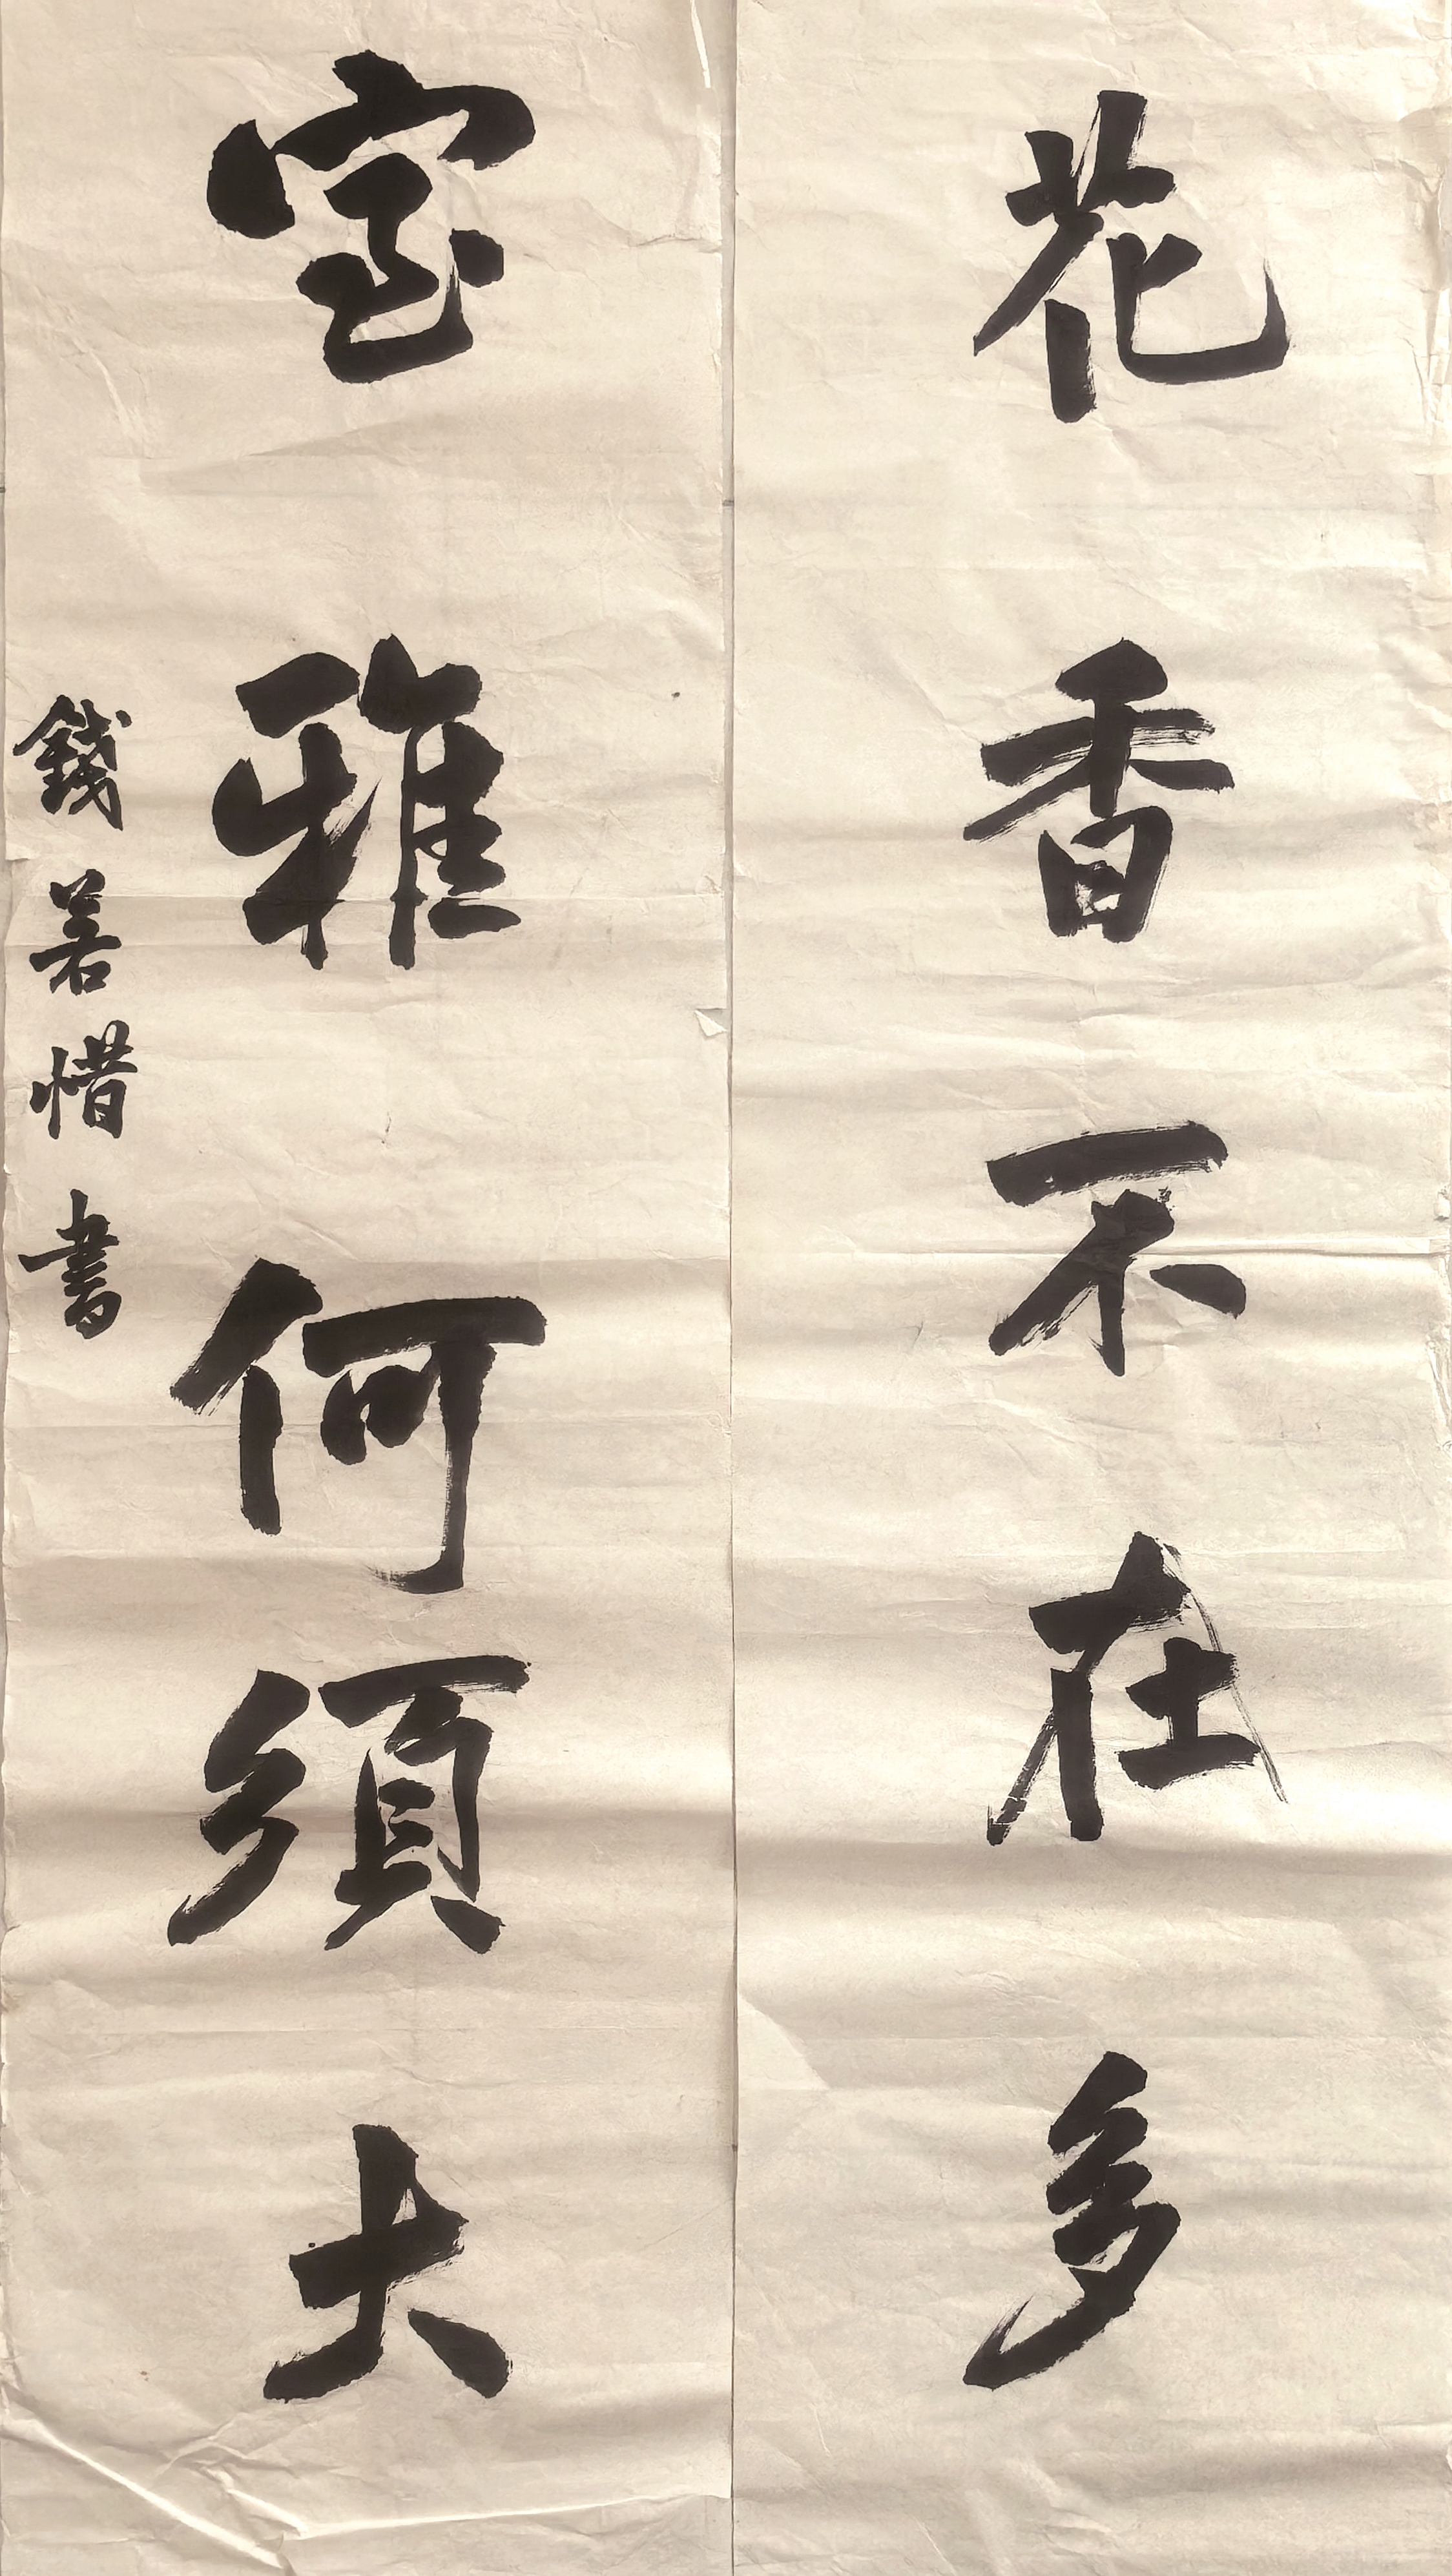 花香不在多
室雅何須大
錢若惜書